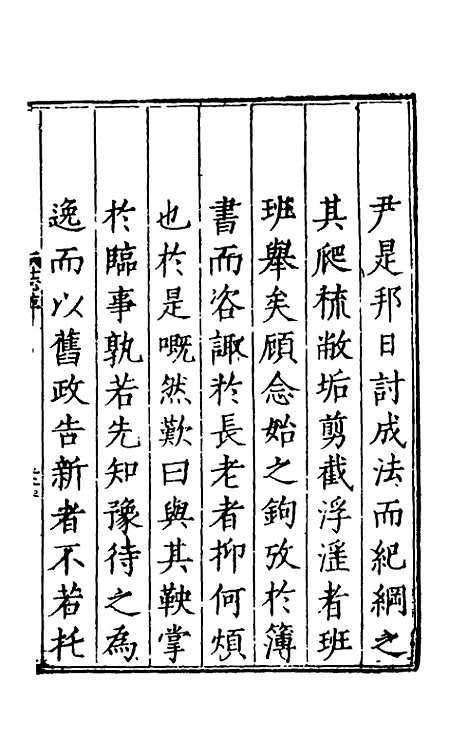 尹是邦日討成法而紀綱之
其爬梳敝垢剪截浮淫者班
班舉矣顧念始之鉤攷於簿
書而咨諏於長老者抑何煩
也於是嘅然歎曰與其鞅掌
於臨事孰若先知豫待之為
逸而以舊政告新者不若托